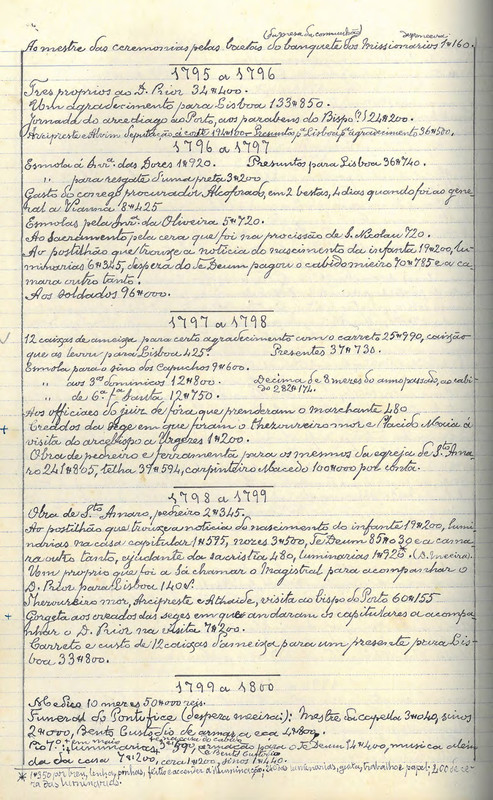 (Impresa da communhão) desponeeira
Ao mestre das ceremonias pelas baetas do banquete dos Missionarios 1#160.
1795 a 1796
Tres proprios ao D. Prior 34#400.
Um agradecimento para Lisboa 133#850.
Jornada do arcediago ao Porto, aos parabens do Bispo (?) 24#200.
Arcipreste e Alvim deputação á corte 194#400. Presuntos, pª Lisboa pª agradecimento 36#500.
1796 a 1797
Esmola á Inrª. das Dores 1#920. Presuntos para Lisboa 36#740.
" para resgate d'uma preta 3#200
Gasto do conego procurador Alcoforado, em 2 bestas, 4 dias quando foi ao gene-
ral a Vianna 8#425
Esmolas pela Inrª. da Oliveira 5#720.
Ao Sacramento pela cera que foi na procissão de S. Nicolau 720.
Ao postilhão que trouxe a noticia do nascimento da infanta 19#200, lu-
minarias 6#345, despeza do Te Deum pagou o cabido mieiro 70#785 e a ca-
mara outro tanto.
Aos soldados 96#000.
1797 a 1798
12 caixas de ameixa para certo agradecimento com o carreto 25#990, caixão
que as levou para Lisboa 425. Presentes 37#730.
Esmola para o sino dos Capuchos 9#600.
" aos 3ºs dominicos 12#800. Decima de 8 mezes do anno passado, ao cabi-
do 282#174.
" de 6ª fª santa 12#750
Aos officiaes do juiz de fóra que prenderam o marchante 480
Creados da sege em que foram o thezoureiro mor e Placido á
visita do arcebispo a Urgezes 1#200.
Obra de pedreiro e ferramenta para os mesmos da egreja de Stº Ama-
ro 241#805, telha 37#594, carpinteiro Macedo 100#000 por conta.
1798 a 1799
Obra de Stº Amaro, pedreiro 2#345.
Ao postilhão que trouxe a noticia do nascimento do infante 19#200, lumi-
narias na casa capitular 1#595, nozes 3#500, Te Deum 85#030 e a cama-
ra outro tanto, ajudante da sacristia 480, luminarias 1#925. (D. meeira).
Um proprio que foi a Sá chamar o Magistral para acompanhar o
D. Prior para Lisboa 140.
Thezoureiro mor, Arcipreste e Athaide, visita ao bispo do Porto 60#155
Gorgeta aos creados das seges em que andaram os capitulares a acompa-
nhar o D. Prior na visita 7#200.
Carreto e custo de 12 caixas d'ameixa para um presente para Lis-
boa 33#800.
1799 a 1800
Medico 10 mezes 50#000 reis.
Funeral do Pontifice (despeza meeira): Mestre da capella 3#040, sinos
2#000, Bento Custodio de armar a eça 4#800.
luminarias 3#500, armação para o Te Deum 14#400, musica alem
da da casa 7#200, cera 1#200, sinos 1#440.
* 1#350 por breu, lenha, pinhas,